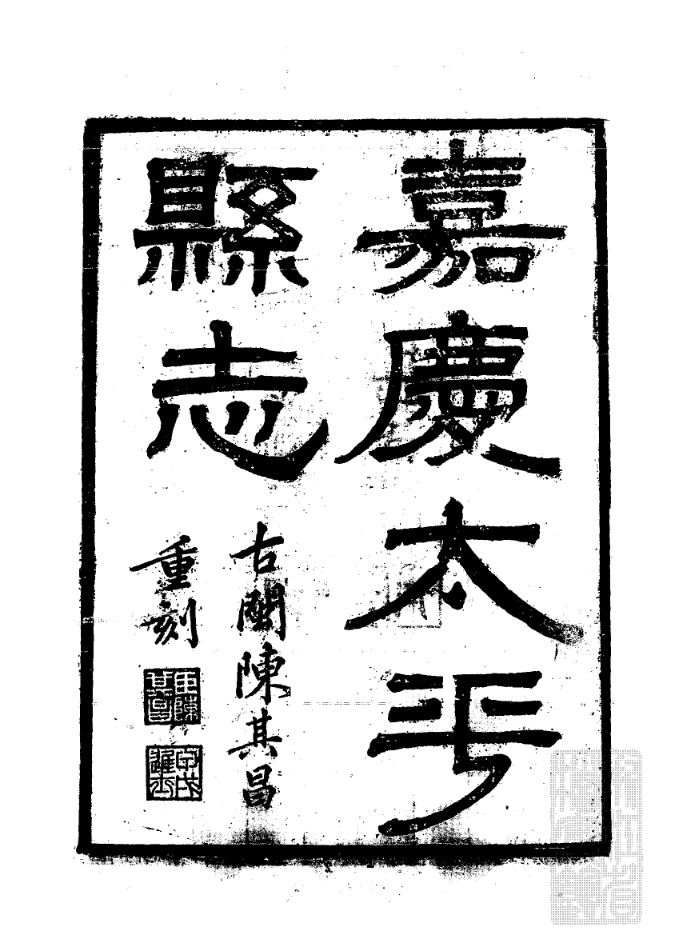 嘉慶太平
縣志
古閩陳其昌
重刻